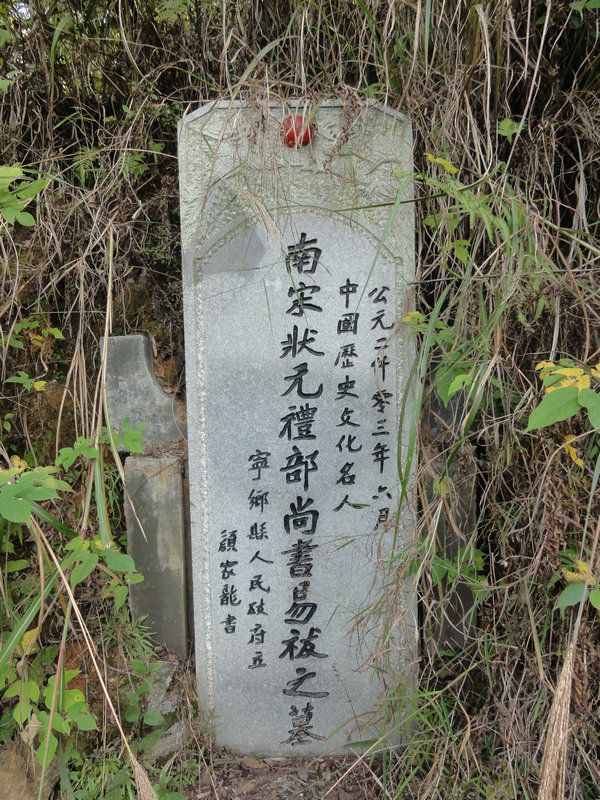 公元二仟零三年六月
中國歷史文化名人
南宋狀元禮部尚書易祓之墓
寧鄉縣人民政府立
顔家龍書